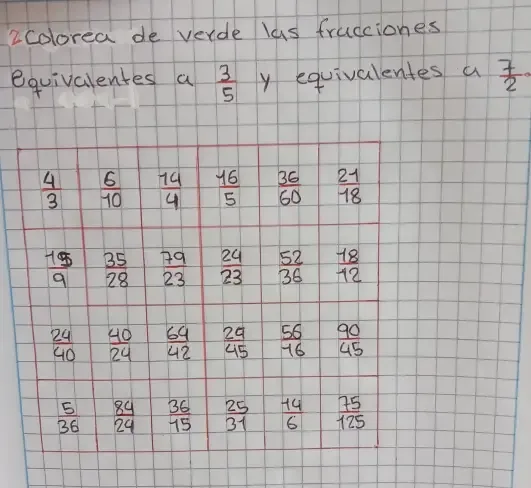 2 Colorea de verde las fracciones
equivalentes a 3/5 y equivalentes a 7/2.
4/3 6/10 14/4 16/5 36/60 21/18
15/9 35/28 79/23 24/23 52/36 18/12
24/40 40/24 64/42 29/45 56/16 90/45
5/36 84/24 36/15 25/31 14/6 75/125